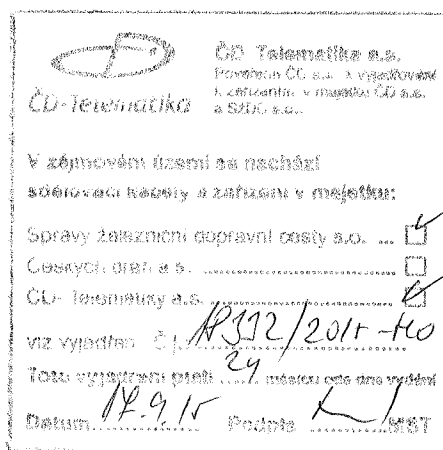 ČD-Telematika
ČD Telematika a.s.
Pověřena ČD a.s. k vyjadřování
k zařízením v majetku ČD a.s.
a SŽDC s.o.
V zájmovém území se nachází
sdělovací kabely a zařízení v majetku:
Správy železniční dopravní cesty s.o. ...
Českých drah a.s. ........................
ČD- Telematiky a.s. ........................
viz vyjádření Č.j. /2015-
Toto vyjádření platí 24 měsíců ode dne vydání
Datum 17.9.15 Podpis ............MBT